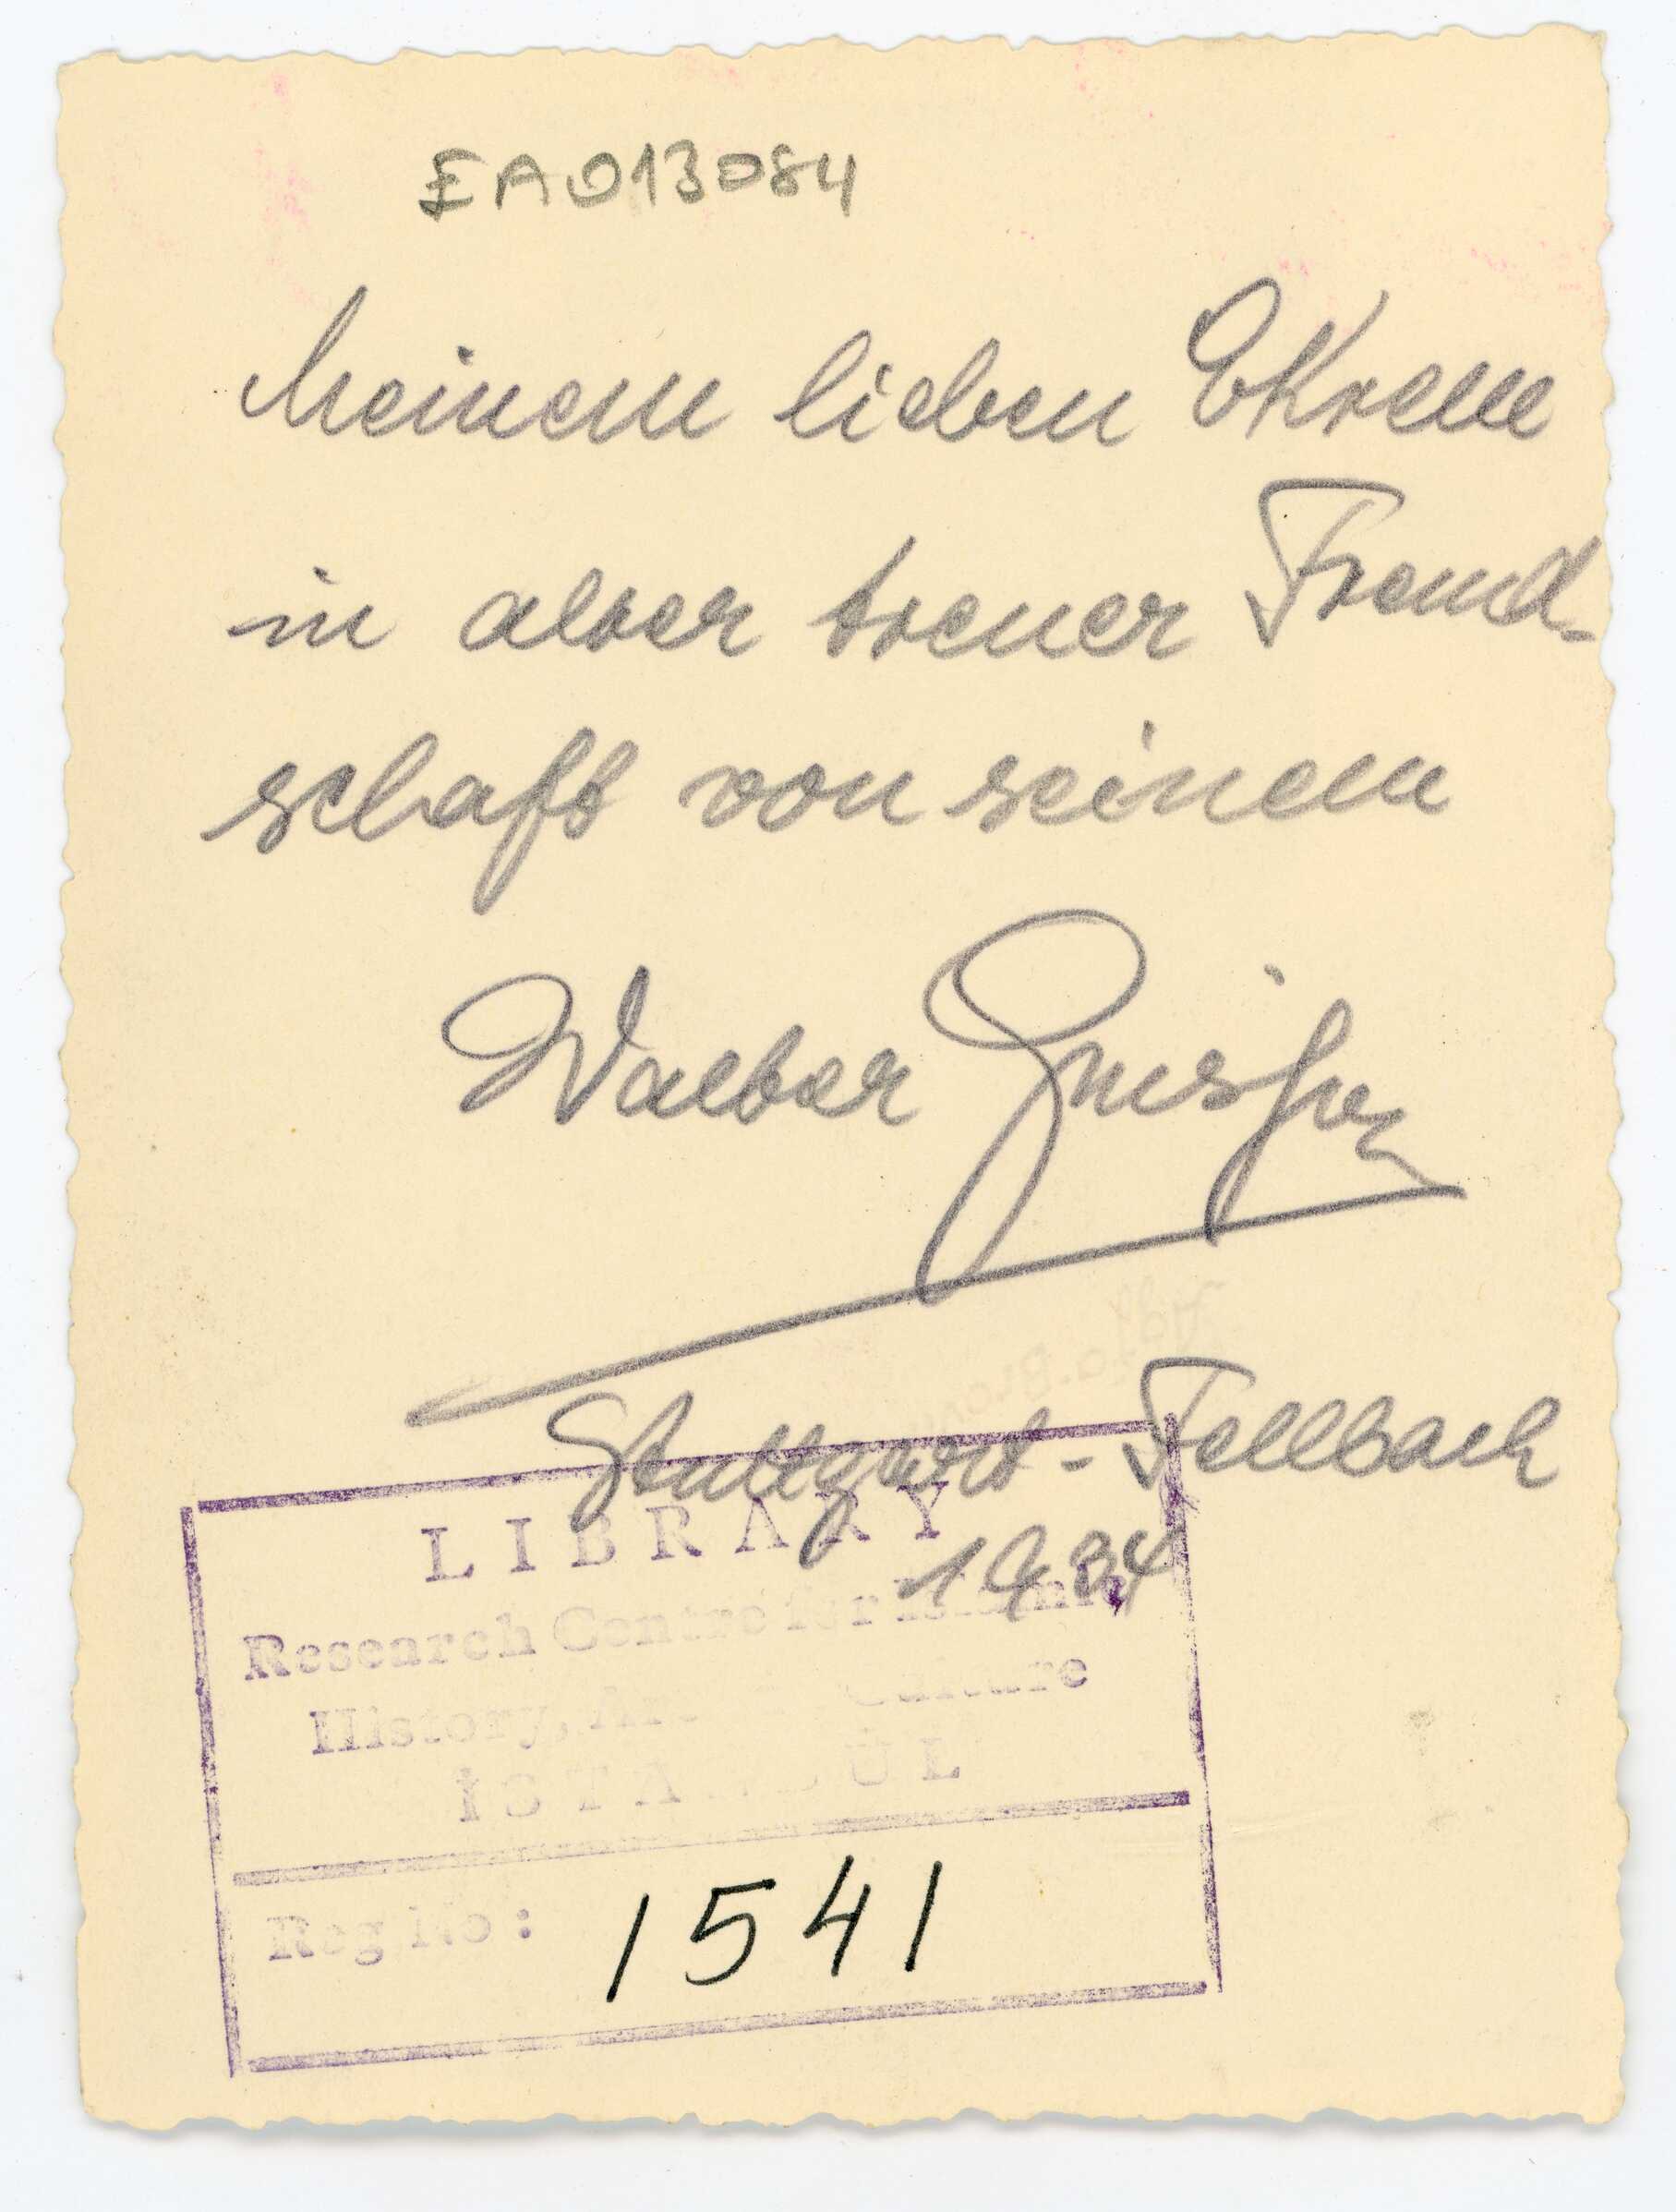 EA013084
Meinem lieben Ekrem
in alter treuer Freund-
schaft von seinem
Walter
Stuttgart - Fellbach
1934
LIBRARY
Research Centre for Islamic
History, Art Culture
İSTANBUL
Reg No : 1541